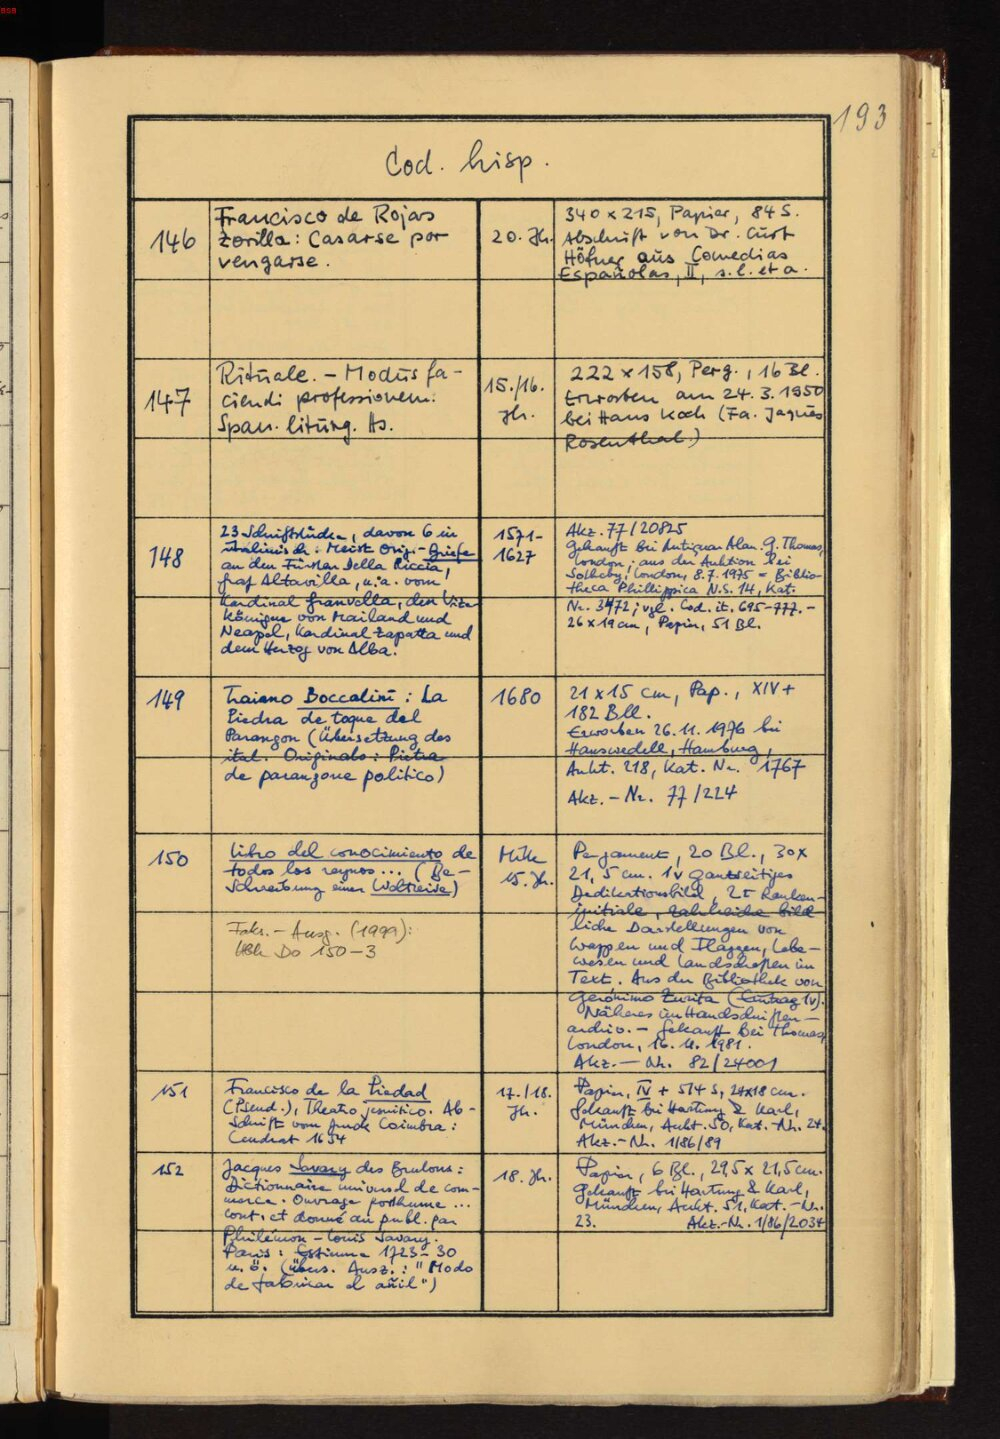 193
Cod. hisp.
146
Francisco de Rojas
Zorilla: Casarse por
vengarse.
20. Jh.
340 x 215, Papier, 84 S.
Abschrift von Dr. Curt
Höfner aus Comedias
Españolas, II, s. l. et a.
147
Rituale. - Modus fa-
ciendi professionem.
Span. liturg. Hs.
15./16.
Jh.
222 x 158, Perg., 16 Bl.
Erworben am 24. 3. 1950
bei Hans Koch (Fa. Jaques
Rosenthal)
148
23 Schriftstücke, davon 6 in
italienisch: Meist Orig.-Briefe
an den Fürsten Della Riccia,
Graf Altavilla, u.a. vom
Kardinal Granvella, den Vize-
königen von Mailand und
Neapel, Kardinal Zapatta und
dem Herzog von Alba.
1571-
1627
Akz. 77/20825
Gekauft bei Antiquar Alan G. Thomas,
London; aus der Auktion bei
Sotheby, London, 8.7.1975 = Biblio-
theca Phillippica N.S. 14, Kat.
Nr. 3472; vgl. Cod. it. 695-777. -
26 x 19 cm, Papier, 51 Bl.
149
Traiano Boccalini: La
Piedra de toque del
Parangon (Übersetzung des
ital. Originals: Pietra
de parangone politico)
1680
21 x 15 cm, Pap., XIV +
182 Bll.
Erworben 26. 11. 1976 bei
Hauswedell, Hamburg,
Aukt. 218, Kat. Nr. 1767
Akz. - Nr. 77/224
150
Libro del conocimiento de
todos los reynos ... (Be-
schreibung einer Weltreise)
Faks. - Ausg. (1999):
Hbh Do 150-3
Mitte
15. Jh.
Pergament, 20 Bl., 30 x
21,5 cm. 1v ganzseitiges
Dedikationsbild, 2r Ranken-
initiale, zahlreiche bild-
liche Darstellungen von
Wappen und Flaggen, Lebe-
wesen und Landschaften im
Text. Aus der Bibliothek von
Gerónimo Zurita (Eintrag 1v).
Näheres im Handschriften-
archiv. - Gekauft bei Thomas,
London, 16. 11. 1981.
Akz. - Nr. 82/24001
151
Francisco de la Piedad
(Pseud.), Theatro jesuitico. Ab-
schrift vom Druck Coimbra:
Cendrat 1654
17./18.
Jh.
Papier, IV + 514 S, 24x18 cm.
Gekauft bei Hartung & Karl,
München, Aukt. 50, Kat. - Nr. 24.
Akz.-Nr. 1/86/89
152
Jacques Savary des Brulons:
Dictionnaire universel de com-
merce. Ouvrage posthume ...
cont. et donné au publ. par
Philémon-Louis Savary.
Paris: Estienne 1723-30
u. ö. (übers. Ausz.: "Modo
de fabricar el añil")
18. Jh.
Papier, 6 Bl., 29,5 x 21,5 cm.
Gekauft bei Hartung & Karl,
München, Aukt. 51, Kat. - Nr.
23. Akz.-Nr. 1/86/2034